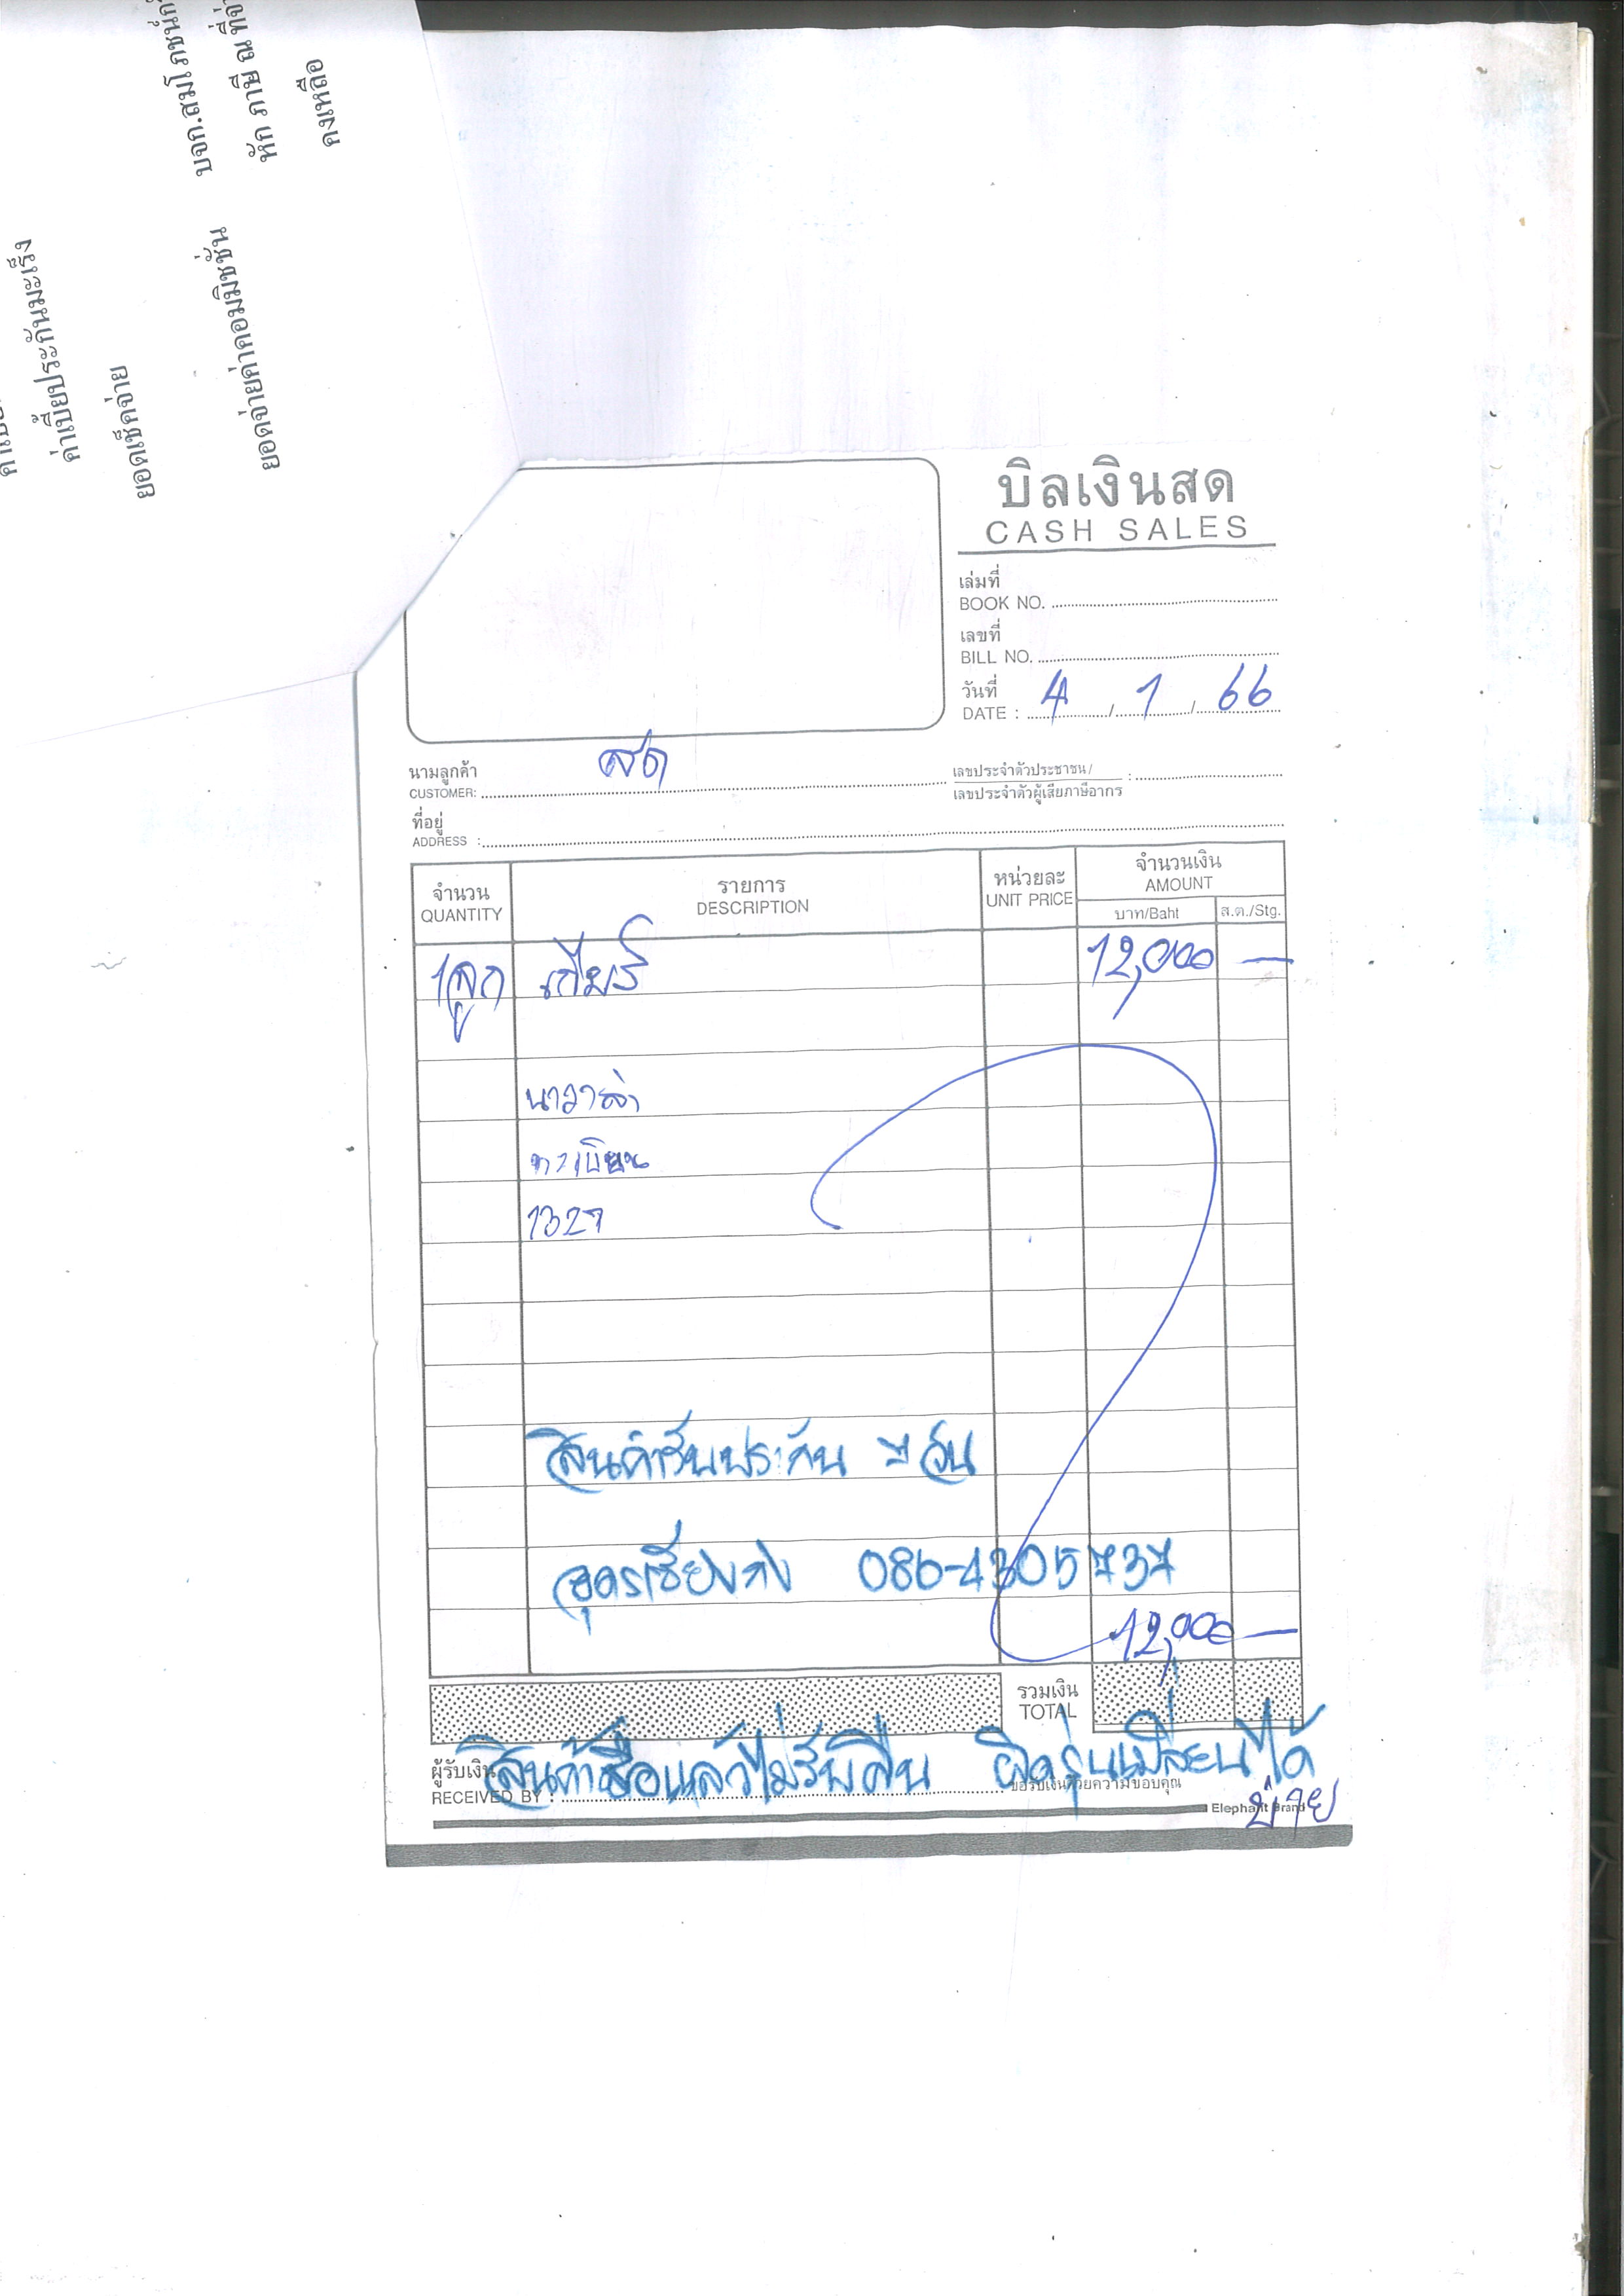 บจก.สมโภชน์ก
หัก ภาษี ณ ที่จ่
คงเหลือ
ค่าเบี้ยประกันมะเร็ง
ยอดเช็คจ่าย
ยอดจ่ายค่าคอมมิชชั่น
บิลเงินสด
CASH SALES
เล่มที่
BOOK NO.
เลขที่
BILL NO.
วันที่
DATE : 4 / 1 / 66
นามลูกค้า
CUSTOMER: สด
เลขประจำตัวประชาชน/ :
เลขประจำตัวผู้เสียภาษีอากร
ที่อยู่
ADDRESS :
จำนวน รายการ หน่วยละ จำนวนเงิน
QUANTITY DESCRIPTION UNIT PRICE AMOUNT
บาท/Baht ส.ต./Stg.
1ลูก เกียร์ 12,000 —
นาวาล่า
ทะเบียน
1327
สินค้ารับประกัน 7 วัน
อุดรเชียงกง 086-4305737
12,000 —
รวมเงิน
TOTAL
สินค้าซื้อแล้วไม่รับคืน ผิดรุ่นเปลี่ยนได้
ผู้รับเงิน
RECEIVED BY :
ขอรับเงินด้วยความขอบคุณ
Elephant Brand